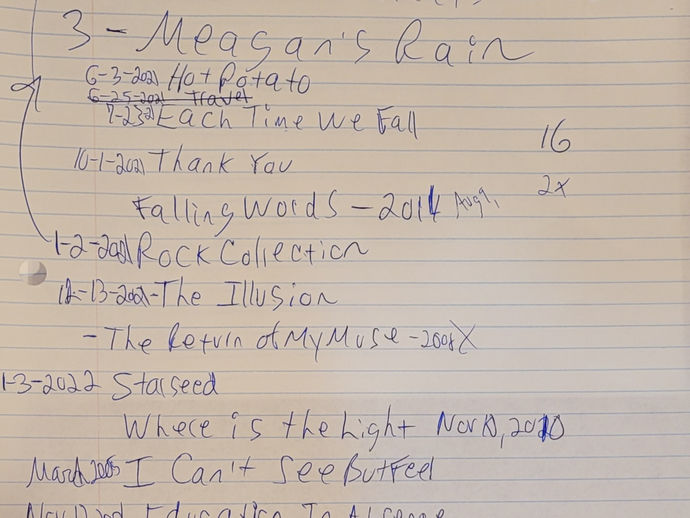 3 - Meagan's Rain
6-3-2021 Hot Potato
6-25-2021 Travel
7-23-21 Each Time We Fall
16
10-1-2021 Thank You
2x
Falling Words - 2014 Aug 9,
1-2-2021 Rock Collection
12-13-2021 - The Illusion
- The Return of My Muse - 2008 X
1-3-2022 Starseed
Where is the Light Nov 10, 2010
March 2005 I Can't See But Feel
Education In